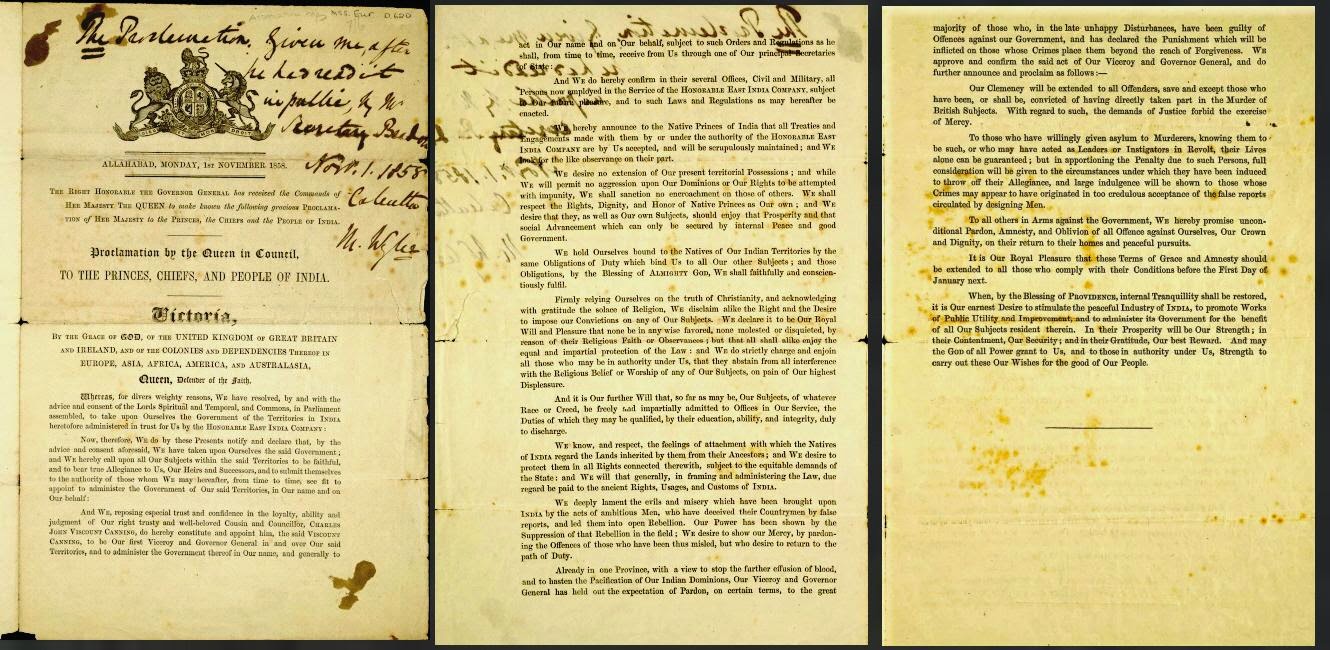 The Proclamation. Given me after
he has read it
in public, by Mr
Secretary Beadon
Novr. 1. 1858
Calcutta
ALLAHABAD, MONDAY, 1ST NOVEMBER 1858.
THE RIGHT HONORABLE THE GOVERNOR GENERAL has received the Commands of
HER MAJESTY THE QUEEN to make known the following gracious PROCLAMA-
TION OF HER MAJESTY TO THE PRINCES, THE CHIEFS AND THE PEOPLE OF INDIA.
Proclamation by the Queen in Council,
TO THE PRINCES, CHIEFS, AND PEOPLE OF INDIA.
Victoria,
BY THE GRACE OF GOD, OF THE UNITED KINGDOM OF GREAT BRITAIN
AND IRELAND, AND OF THE COLONIES AND DEPENDENCIES THEREOF IN
EUROPE, ASIA, AFRICA, AMERICA, AND AUSTRALASIA,
Queen, Defender of the Faith.
Whereas, for divers weighty reasons, We have resolved, by and with the
advice and consent of the Lords Spiritual and Temporal, and Commons, in Parliament
assembled, to take upon Ourselves the Government of the Territories in INDIA
heretofore administered in trust for Us by the HONORABLE EAST INDIA COMPANY:
Now, therefore, WE do by these Presents notify and declare that, by the
advice and consent aforesaid, WE have taken upon Ourselves the said Government;
and WE hereby call upon all Our Subjects within the said Territories to be faithful,
and to bear true Allegiance to Us, Our Heirs and Successors, and to submit themselves
to the authority of those whom WE may hereafter, from time to time, see fit to
appoint to administer the Government of Our said Territories, in Our name and on
Our behalf:
And WE, reposing especial trust and confidence in the loyalty, ability and
judgment of Our right trusty and well-beloved Cousin and Councillor, CHARLES
JOHN VISCOUNT CANNING, do hereby constitute and appoint him, the said VISCOUNT
CANNING, to be Our first Viceroy and Governor General in and over Our said
Territories, and to administer the Government thereof in Our name, and generally to
act in Our name and on Our behalf, subject to such Orders and Regulations as he
shall, from time to time, receive from Us through one of Our principal Secretaries
of State:
And WE do hereby confirm in their several Offices, Civil and Military, all
Persons now employed in the Service of the HONORABLE EAST INDIA COMPANY, subject
to Our future pleasure, and to such Laws and Regulations as may hereafter be
enacted.
We hereby announce to the Native Princes of India that all Treaties and
Engagements made with them by or under the authority of the HONORABLE EAST
INDIA COMPANY are by Us accepted, and will be scrupulously maintained; and WE
look for the like observance on their part.
We desire no extension of Our present territorial Possessions; and while
WE will permit no aggression upon Our Dominions or Our Rights to be attempted
with impunity, WE shall sanction no encroachment on those of others. WE shall
respect the Rights, Dignity, and Honor of Native Princes as Our own; and WE
desire that they, as well as Our own Subjects, should enjoy that Prosperity and that
social Advancement which can only be secured by internal Peace and good
Government.
WE hold Ourselves bound to the Natives of Our Indian Territories by the
same Obligations of Duty which bind Us to all Our other Subjects; and those
Obligations, by the Blessing of ALMIGHTY GOD, WE shall faithfully and conscien-
tiously fulfil.
Firmly relying Ourselves on the truth of Christianity, and acknowledging
with gratitude the solace of Religion, WE disclaim alike the Right and the Desire
to impose our Convictions on any of Our Subjects. WE declare it to be Our Royal
Will and Pleasure that none be in any wise favored, none molested or disquieted, by
reason of their Religious Faith or Observances; but that all shall alike enjoy the
equal and impartial protection of the Law: and WE do strictly charge and enjoin
all those who may be in authority under Us, that they abstain from all interference
with the Religious Belief or Worship of any of Our Subjects, on pain of Our highest
Displeasure.
And it is Our further Will that, so far as may be, Our Subjects, of whatever
Race or Creed, be freely and impartially admitted to Offices in Our Service, the
Duties of which they may be qualified, by their education, ability, and integrity, duly
to discharge.
WE know, and respect, the feelings of attachment with which the Natives
of INDIA regard the Lands inherited by them from their Ancestors; and WE desire to
protect them in all Rights connected therewith, subject to the equitable demands of
the State: and WE will that generally, in framing and administering the Law, due
regard be paid to the ancient Rights, Usages, and Customs of INDIA.
WE deeply lament the evils and misery which have been brought upon
INDIA by the acts of ambitious Men, who have deceived their Countrymen by false
reports, and led them into open Rebellion. Our Power has been shown by the
Suppression of that Rebellion in the field; WE desire to show our Mercy, by pardon-
ing the Offences of those who have been thus misled, but who desire to return to the
path of Duty.
Already in one Province, with a view to stop the further effusion of blood,
and to hasten the Pacification of Our Indian Dominions, Our Viceroy and Governor
General has held out the expectation of Pardon, on certain terms, to the great
majority of those who, in the late unhappy Disturbances, have been guilty of
Offences against our Government, and has declared the Punishment which will be
inflicted on those whose Crimes place them beyond the reach of Forgiveness. WE
approve and confirm the said act of Our Viceroy and Governor General, and do
further announce and proclaim as follows:—
Our Clemency will be extended to all Offenders, save and except those who
have been, or shall be, convicted of having directly taken part in the Murder of
British Subjects. With regard to such, the demands of Justice forbid the exercise
of Mercy.
To those who have willingly given asylum to Murderers, knowing them to
be such, or who may have acted as Leaders or Instigators in Revolt, their Lives
alone can be guaranteed; but in apportioning the Penalty due to such Persons, full
consideration will be given to the circumstances under which they have been induced
to throw off their Allegiance, and large indulgence will be shown to those whose
Crimes may appear to have originated in too credulous acceptance of the false reports
circulated by designing Men.
To all others in Arms against the Government, WE hereby promise uncon-
ditional Pardon, Amnesty, and Oblivion of all Offence against Ourselves, Our Crown
and Dignity, on their return to their homes and peaceful pursuits.
It is Our Royal Pleasure that these Terms of Grace and Amnesty should
be extended to all those who comply with their Conditions before the First Day of
January next.
When, by the Blessing of PROVIDENCE, internal Tranquillity shall be restored,
it is Our earnest Desire to stimulate the peaceful Industry of INDIA, to promote Works
of Public Utility and Improvement, and to administer its Government for the benefit
of all Our Subjects resident therein. In their Prosperity will be Our Strength; in
their Contentment, Our Security; and in their Gratitude, Our best Reward. And may
the GOD of all Power grant to Us, and to those in authority under Us, Strength to
carry out these Our Wishes for the good of Our People.